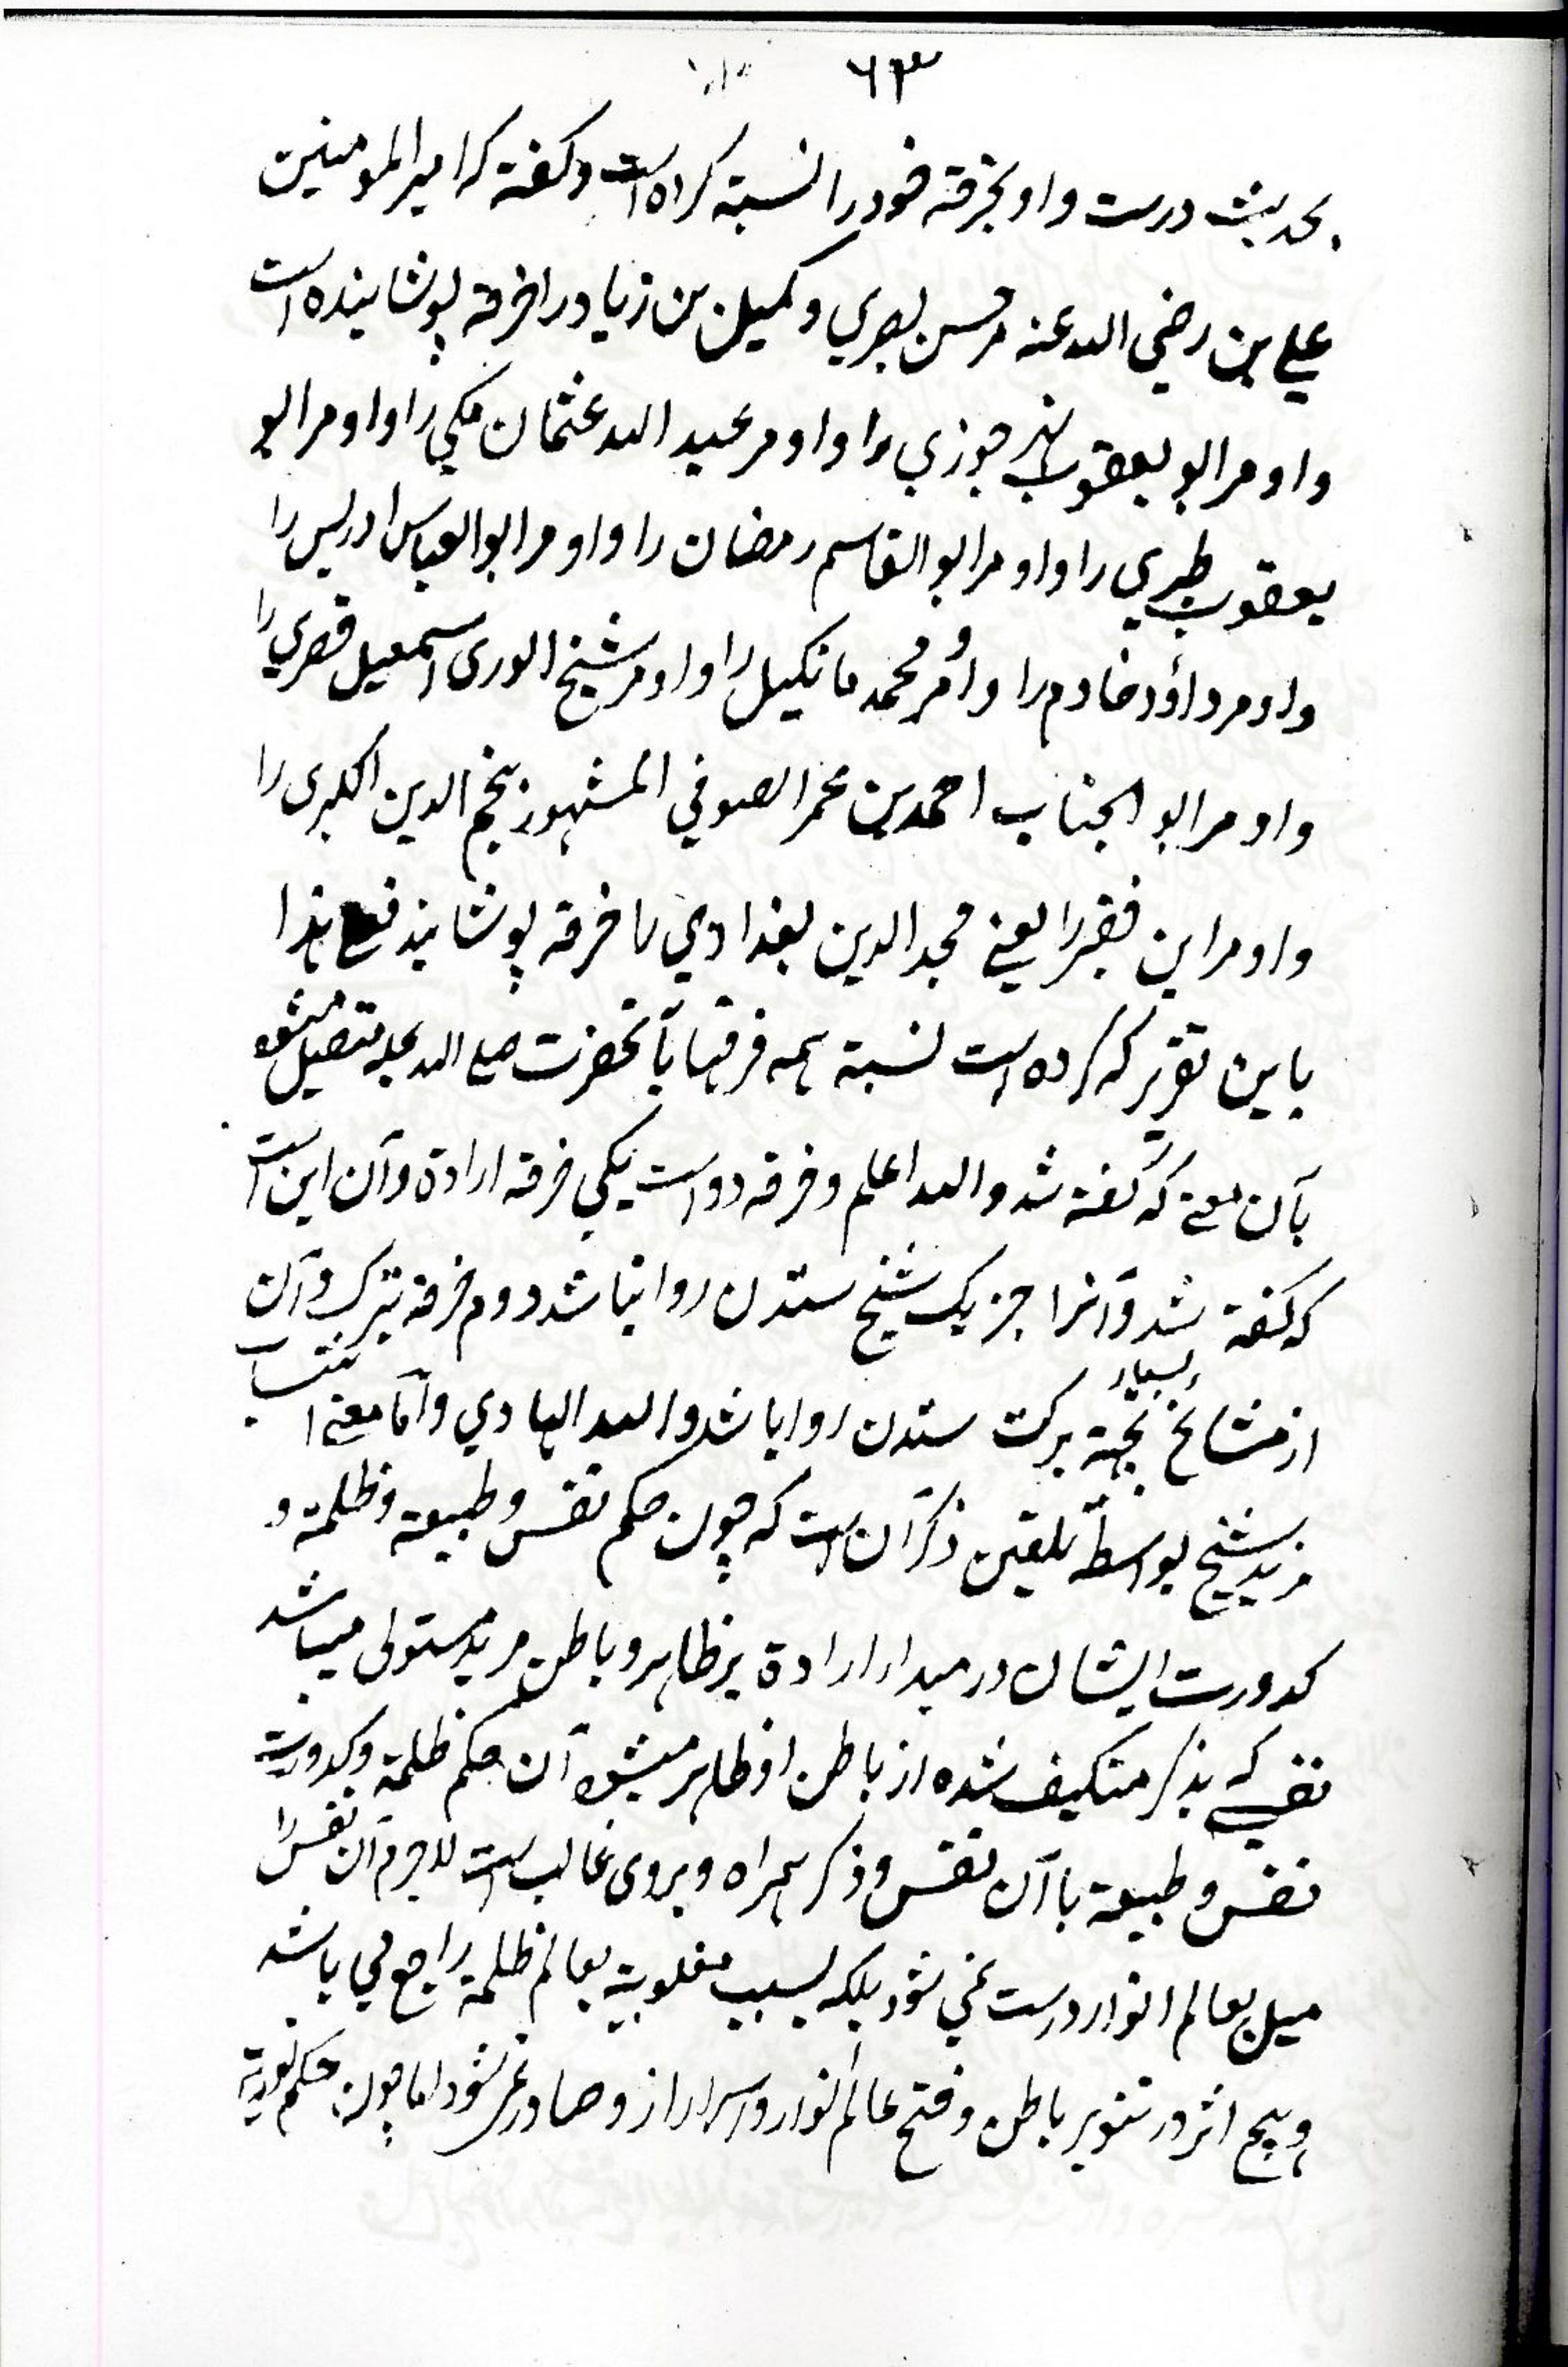 ٦٣
بحدیث درست و او بخرقه خود را نسبة کرده است و گفته که امیر المومنین
علي بن رضي الله عنه مر حسن بصري و کمیل بن زیاد را خرقه پوشاینده است
و او مر ابو یعقوب نهر جوزي را و او مر عبد الله عثمان مکي را و او مر ابو
یعقوب طبري را و او مر ابو القاسم رمضان را و او مر ابو العباس ادریس را
و او مر داؤد خادم را و او مر محمد مانکیل را و او مر شیخ الوری اسمعیل قصري را
و او مر ابو الجناب احمد بن عمر الصوفي المشهور بنجم الدین الکبری را
و او مر این فقیر را یعنے مجد الدین بغدادي را خرقه پوشانید فعلے هذا
باین تقریر که کرده است نسبة همه خرقها بآنحضرت صلے الله علیه متصل میشود
بآن معنے که گفته شد و الله اعلم و خرقه دو است یکي خرقه ارادة و آن این است
که گفته شد و آنرا جز یک شیخ ستدن روا نباشد دوم خرقه تبرک و آن
از مشایخ بسیار بجهة برکت ستدن روا باشد و الله الهادي و اما معنے انتساب
مرید بشیخ بواسطه تلقین ذکر آن است که چون حکم نفس و طبیعة و ظلمة و
کدورت ایشان در مبداء ارادة بر ظاهر و باطن مرید مستولی میباشد
نفسے که بذکر متکیف شده از باطن او ظاهر میشود آن حکم ظلمة و کدورت
نفس و طبیعة با آن نفس و ذکر همراه و بروی غالب است لاجرم آن نفس را
میل بعالم انوار درست نمي شود بلکه بسبب مغلوبیة بعالم ظلمة راجع مي باشد
و هیچ اثر در تنویر باطن و فتح عالم انوار و اسرار از و صادر نمی شود اما چون حکم